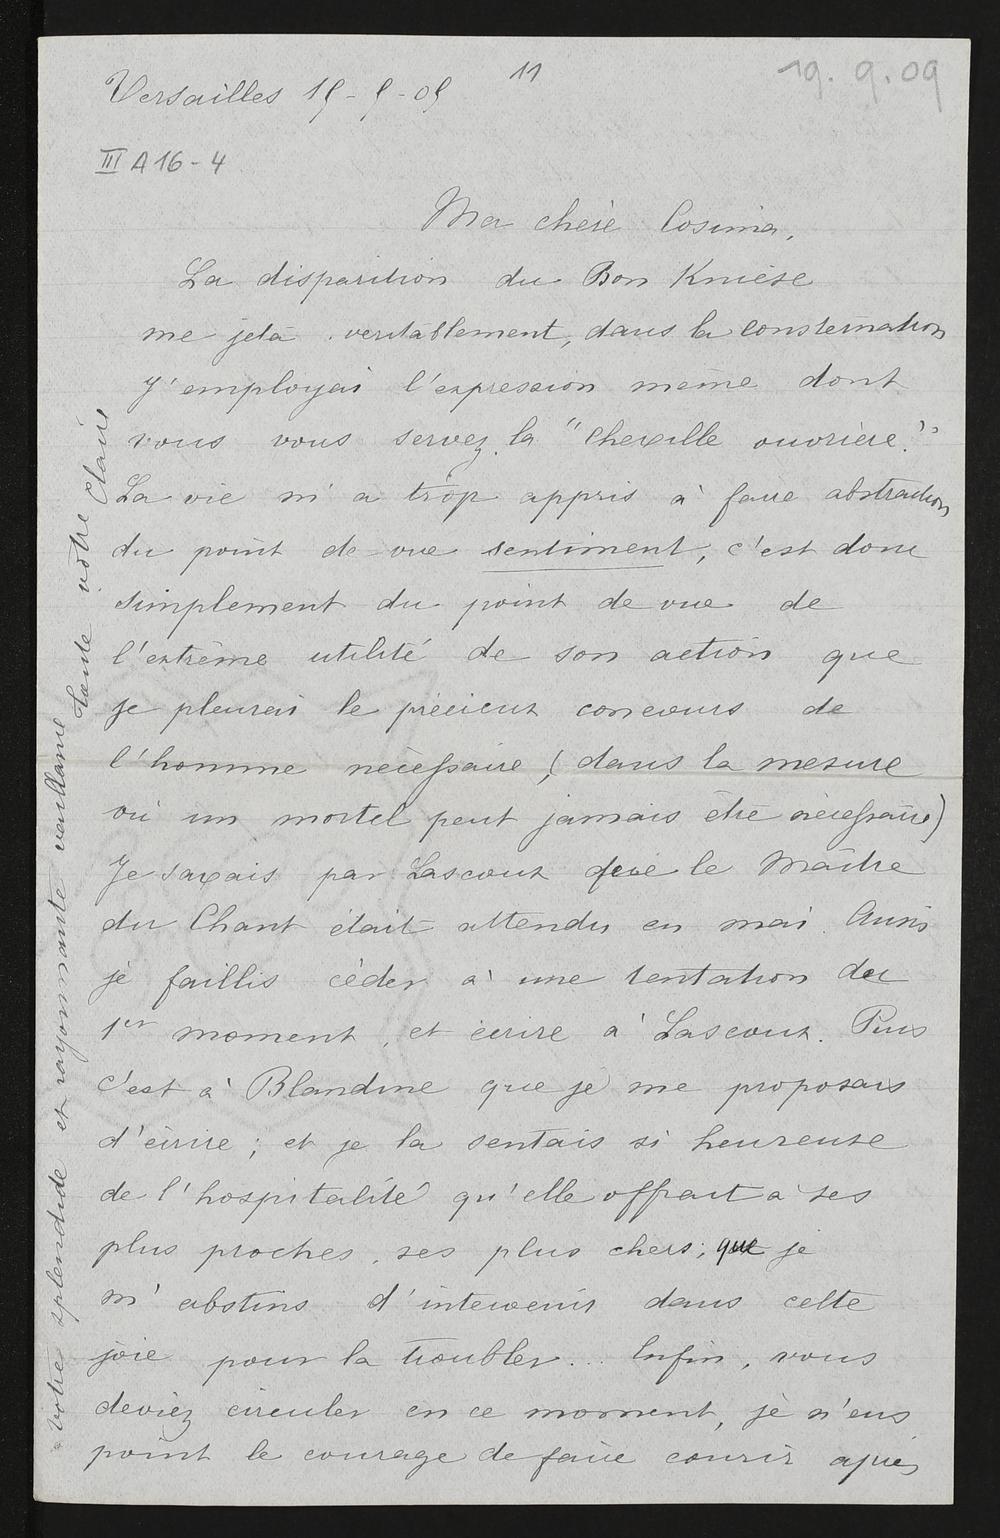 11
19. 9. 09
Versailles 19-9-09
III A 16-4
Ma chère Cosima,
La disparition du Bon Kniese
me jeta veritablement, dans la consternation
J'employai l'expression même dont
vous vous servez, la "cheville ouvrière."
La vie m'a trop appris à faire abstraction
du point de vue sentiment, c'est donc
simplement du point de vue de
l'extrême utilité de son action que
je pleurais le précieux concours de
l'homme nécessaire, (dans la mesure
où un mortel peut jamais être nécessaire)
Je savais par Lascoux que le Maître
du Chant était attendu en mai. Aussi
je faillis céder à une tentation du
1er moment, et écrire à Lascoux. Puis
c'est à Blandine que je me proposais
d'écrire; et je la sentais si heureuse
de l'hospitalité qu'elle offrait à ses
plus proches, ses plus chers; que je
m'abstins d'intervenir dans cette
joie pour la troubler... Enfin, vous
deviez circuler en ce moment, je n'eus
point le courage de faire courir après
votre splendide et rayonnante vaillance
toute vôtre Claire